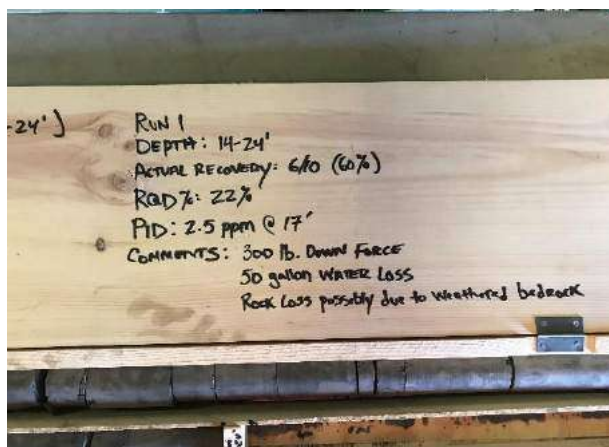 -24']
RUN 1
DEPTH: 14-24'
ACTUAL RECOVERY: 6/10 (60%)
RQD %: 22%
PID: 2.5 ppm @ 17'
COMMENTS: 300 lb. DOWN FORCE
50 gallon WATER LOSS
Rock Loss possibly due to weathered bedrock